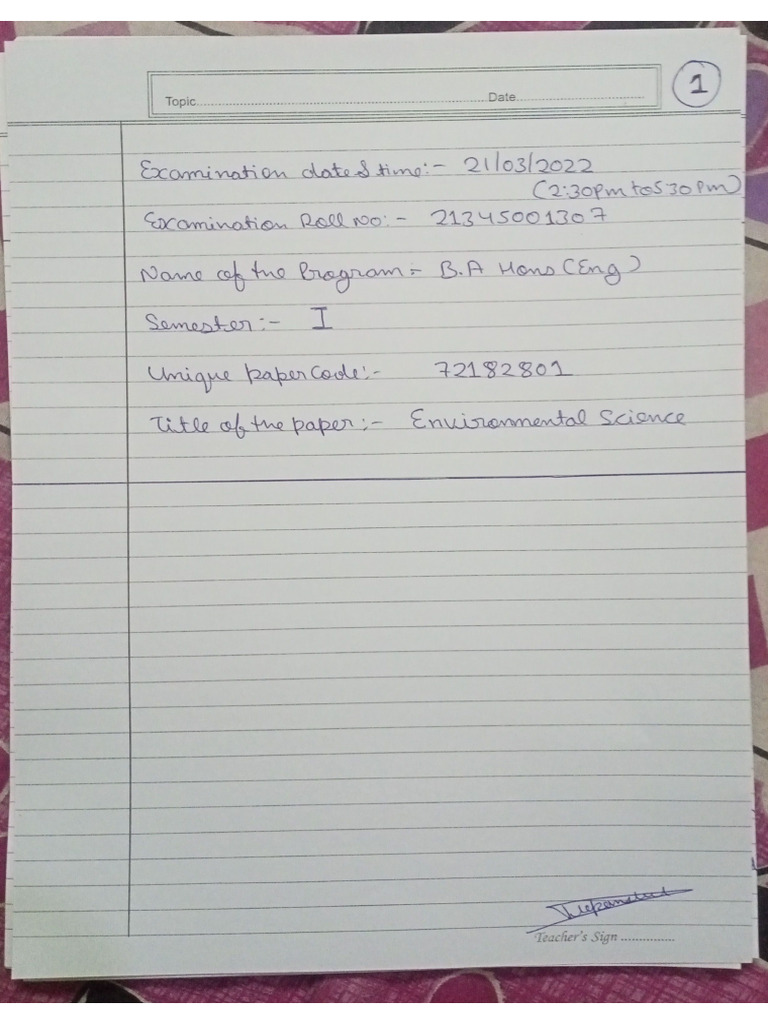 Topic.......... Date..........
1
Examination date & time:- 21/03/2022
(2:30pm to 5:30pm)
Examination Roll No:- 21345001307
Name of the Program:- B.A Hons (Eng)
Semester:- I
Unique paper Code:- 72182801
Title of the paper:- Environmental Science
Teacher's Sign ...............